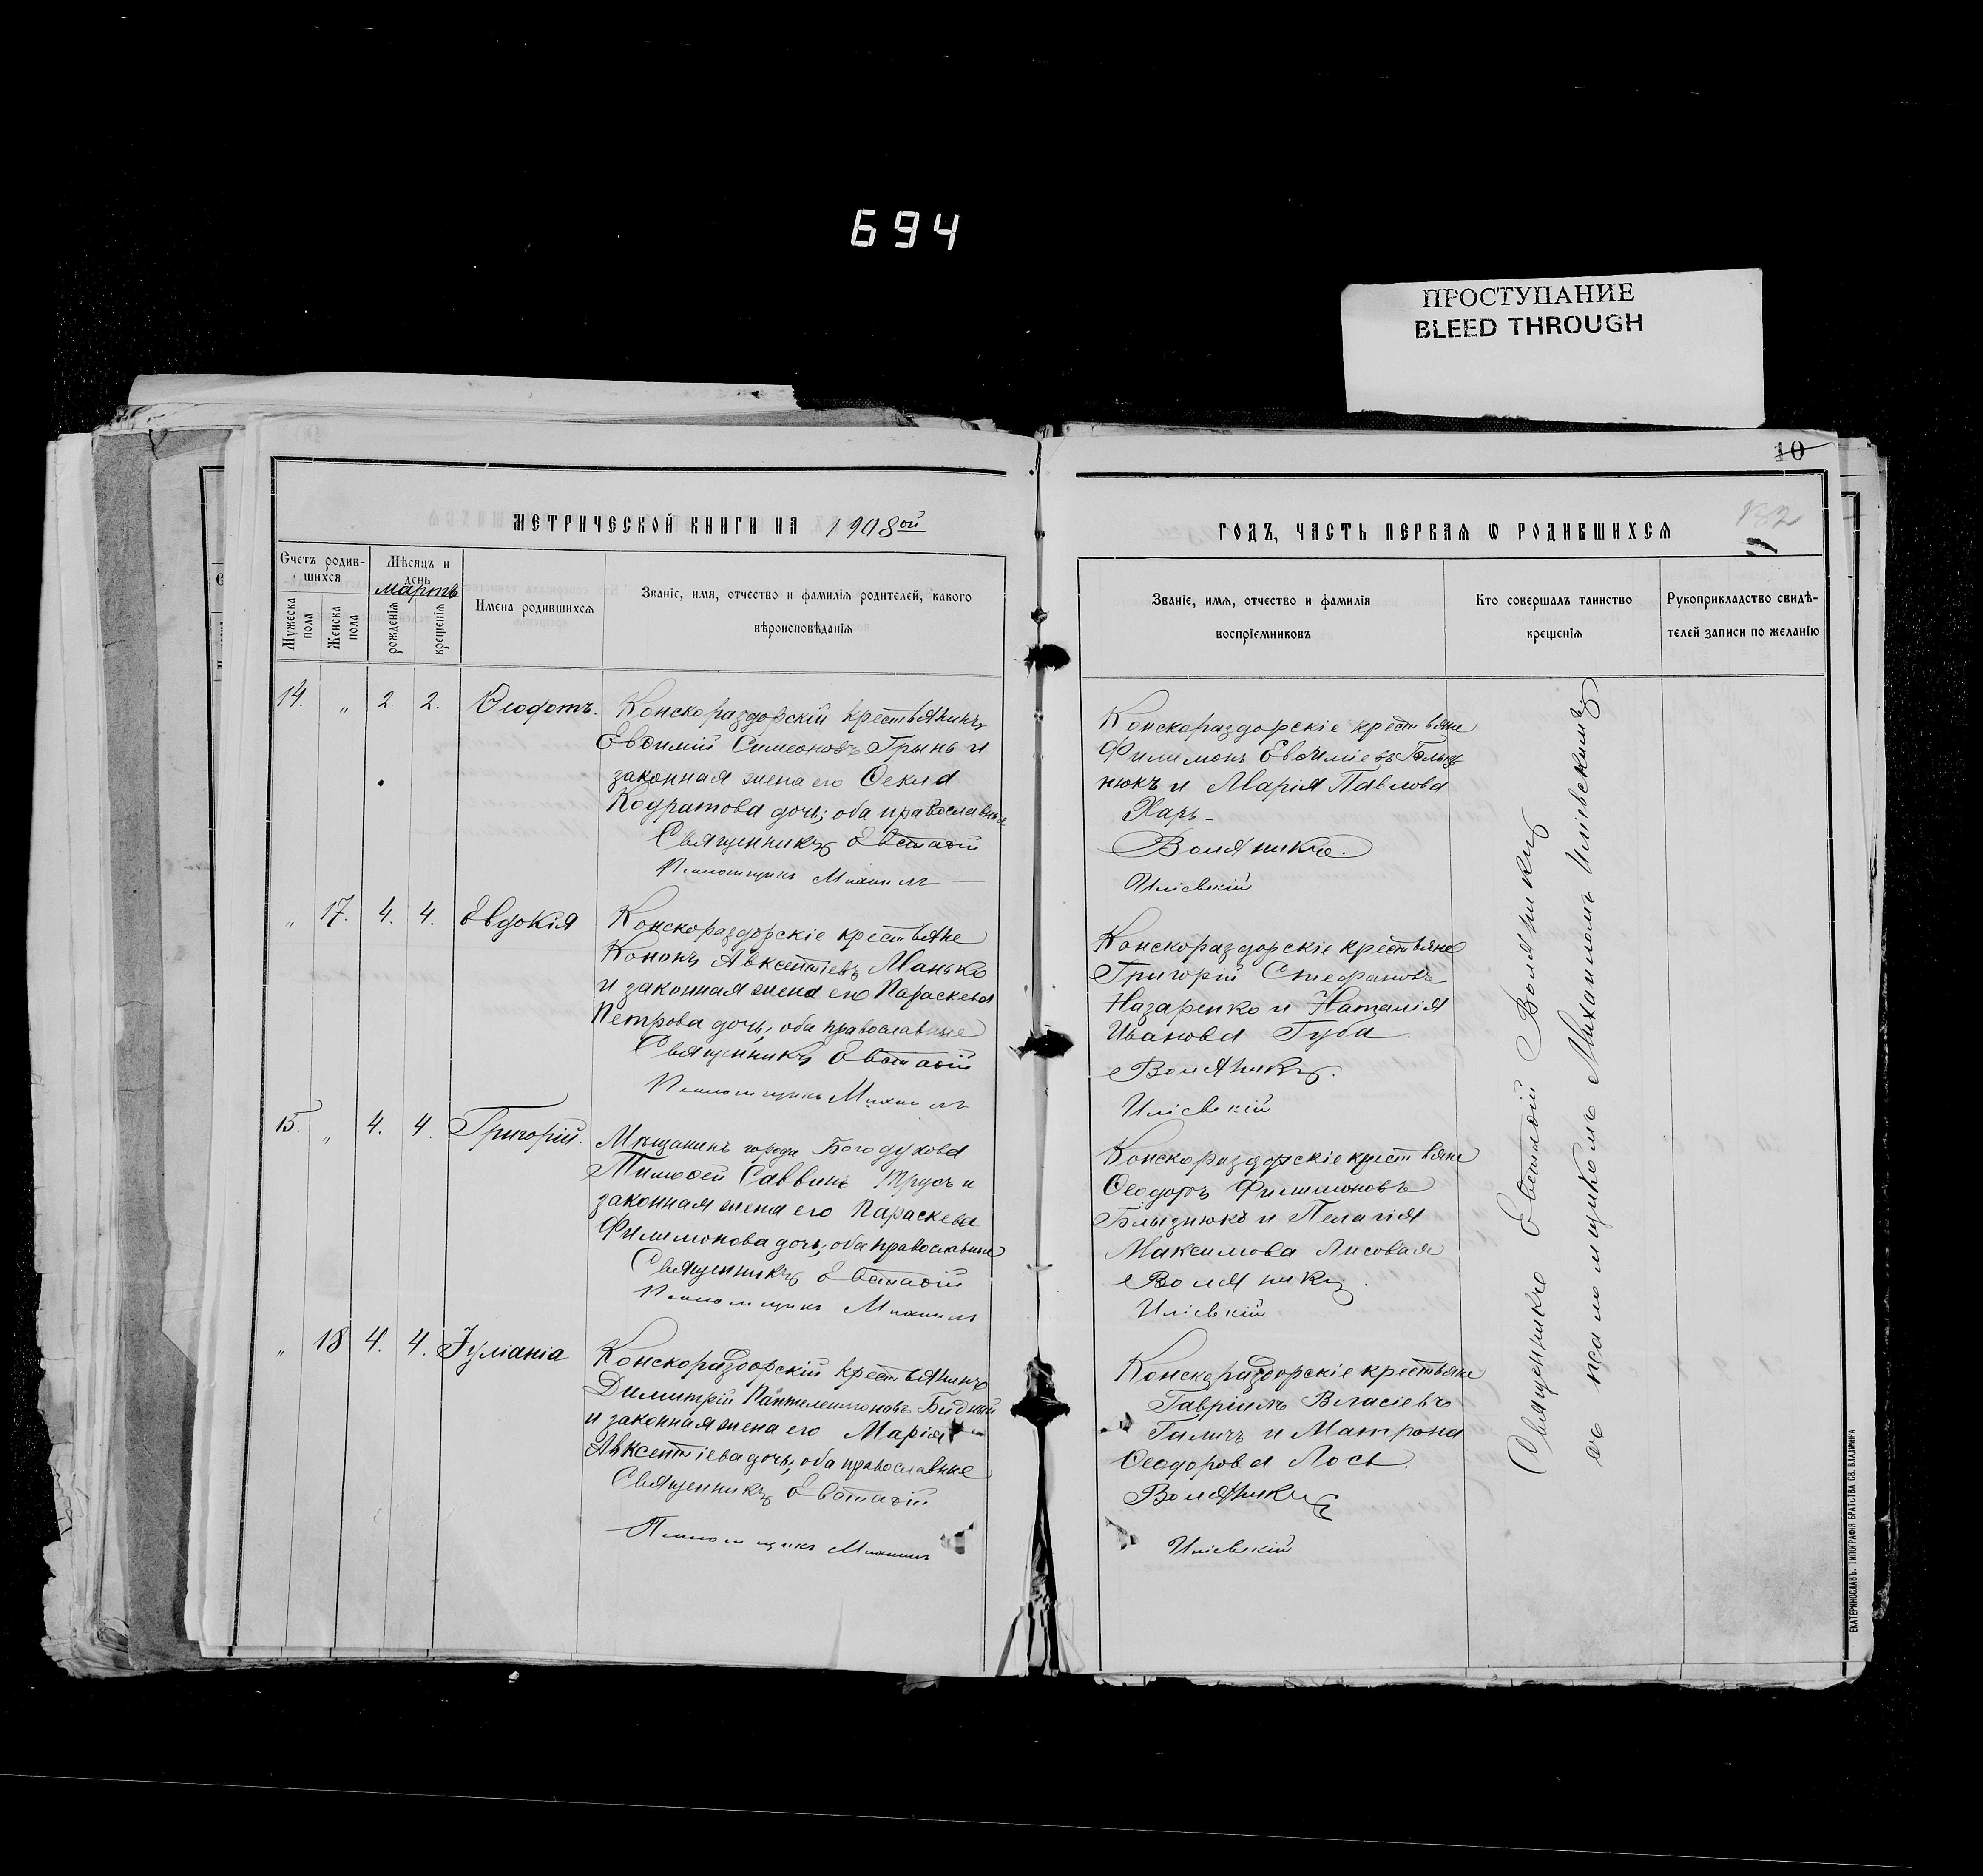 694
ПРОСТУПАНИЕ
BLEED THROUGH
10
132
МЕТРИЧЕСКОЙ КНИГИ НА 1908ой
ГОДЪ, ЧАСТЬ ПЕРВАЯ Ѡ РОДИВШИХСЯ
Счетъ родив-
шихся
Мужеска пола
Женска пола
Мѣсяцъ и
день
Мартъ
рожденія
крещенія
Имена родившихся
Званіе, имя, отчество и фамилія родителей, какого
вѣроисповѣданія
Званіе, имя, отчество и фамилія
воспріемниковъ
Кто совершалъ таинство
крещенія
Рукоприкладство свидѣ-
телей записи по желанію
14. „ 2. 2. Ѳеодотъ.
Конскораздорскій крестьянинъ
Евѳимій Симеоновъ Грынь и
законная жена его Ѳекла
Кодратова дочь; оба православные
Священникъ Евстаѳій
Псаломщикъ Михаилъ
Конскораздорскіе крестьяне
Филимонъ Евѳиміевъ Блыз
нюкъ и Марія Павлова
Харь
Воляникъ.
Иліевскій
„ 17. 4. 4. Евдокія
Конскораздорскіе крестьяне
Кононъ Авксентіевъ Манько
и законная жена его Параскева
Петрова дочь, оба православные
Священникъ Евстаѳій
Псаломщикъ Михаилъ
Конскораздорскіе крестьяне
Григорій Стефановъ
Назаренко и Наталія
Иванова Губа.
Воляникъ.
Иліевскій
15. „ 4. 4. Григорій.
Мѣщанинъ города Богодухова
Тимоѳей Саввинъ Трусъ и
законная жена его Параскева
Филимонова дочь, оба православные
Священникъ Евстаѳій
Псаломщикъ Михаилъ
Конскораздорскіе крестьяне
Ѳеодоръ Филимоновъ
Блызнюкъ и Пелагія
Максимова Лисовая
Воляникъ.
Иліевскій
„ 18 4. 4. Іуліанія
Конскораздорскій крестьянинъ
Димитрій Пантелеимоновъ Бидный
и законная жена его Марія
Авксентіева дочь, оба православные
Священникъ Евстаѳій
Псаломщикъ Михаилъ
Конскораздорскіе крестьяне
Гавріилъ Власіевъ
Галичъ и Матрона
Ѳеодорова Лось.
Воляникъ
Иліевскій
Священникъ Евстаѳій Воляникъ
съ псаломщикомъ Михаиломъ Иліевскимъ
ЕКАТЕРИНОСЛАВЪ. ТИПОГРАФІЯ БРАТСТВА СВ. ВЛАДИМІРА